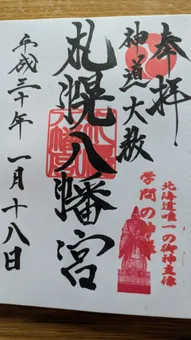 奉拝
神道大教
北海道唯一の御神像
学問の神様
札幌八幡宮
平成三十年 一月十八日